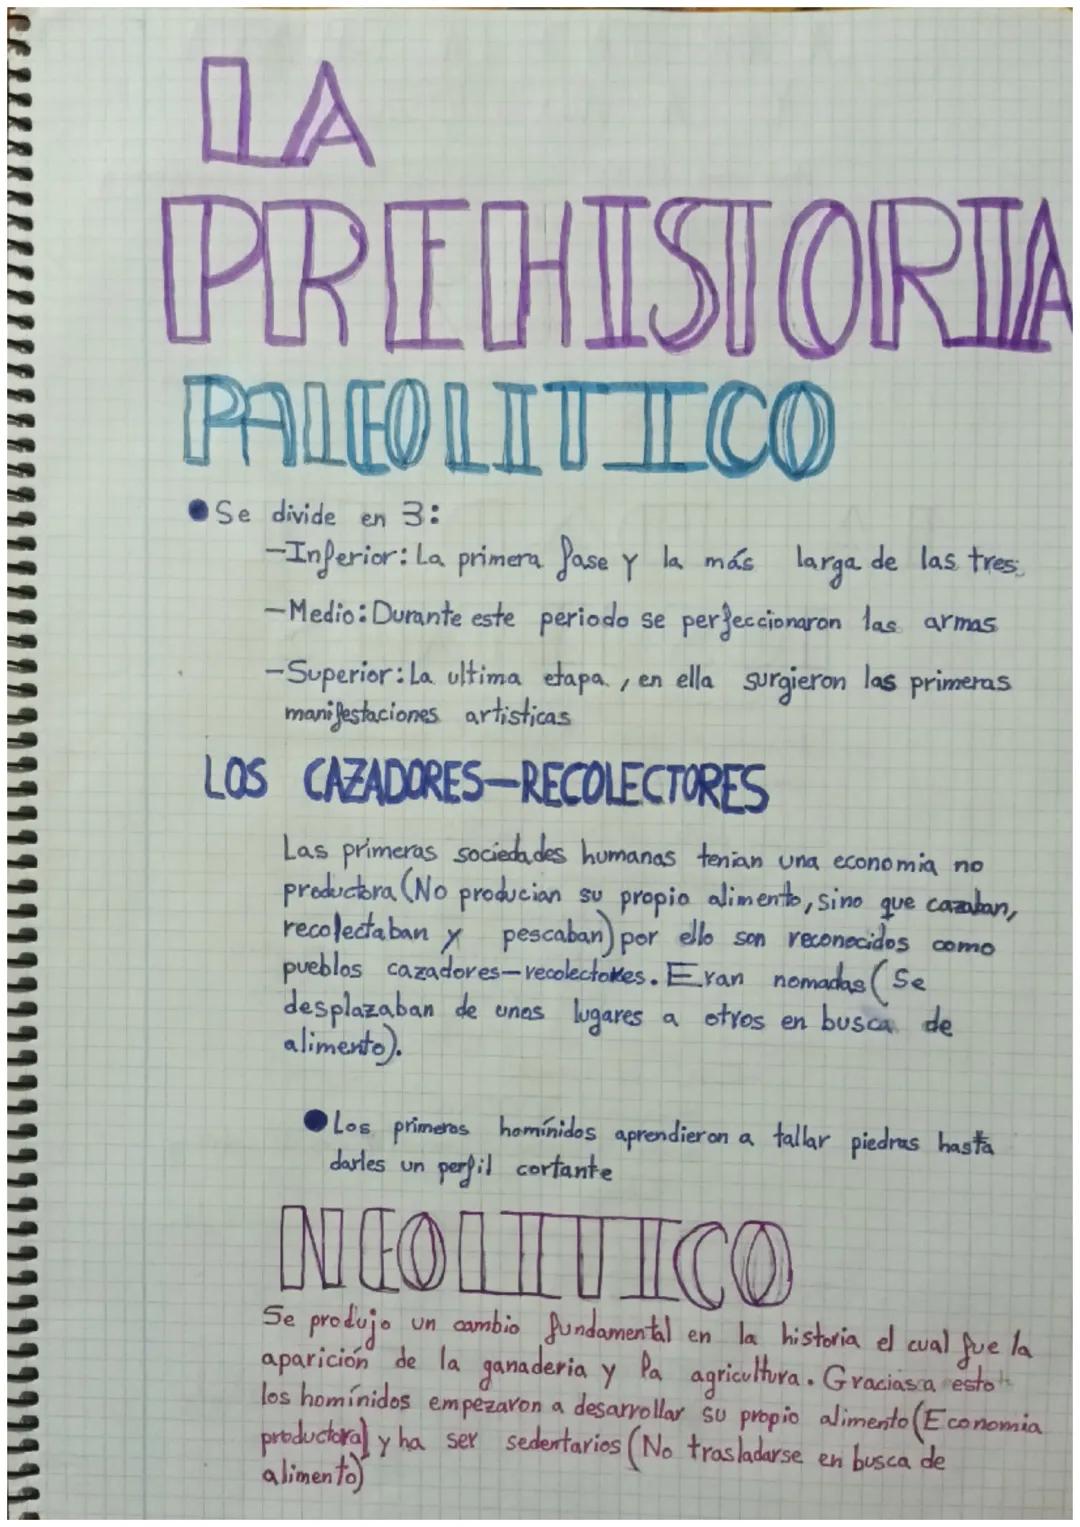 LA
PREHISTORIA
PALEOLITICO
Se divide en 3:
-Inferior: La primera fase y la más larga de las tres.
-Medio: Durante este periodo se perfeccionaron las armas
-Superior: La ultima etapa, en ella surgieron las primeras
manifestaciones artisticas
LOS CAZADORES-RECOLECTORES
Las primeras sociedades humanas tenian una economia no
productora (No producian su propio alimento, sino que cazaban,
recolectaban y pescaban) por ello son reconocidos como
pueblos cazadores-recolectores. Eran nomadas (Se
desplazaban de unos lugares a otros en busca de
alimento).
Los primeros homínidos aprendieron a tallar piedras hasta
darles un perfil cortante
NEOLITICO
Se produjo un cambio fundamental en la historia el cual fue la
aparición de la ganaderia y la agricultura. Gracias a esto
los homínidos empezaron a desarrollar su propio alimento (Economia
productora) y ha ser sedentarios (No trasladarse en busca de
alimento)